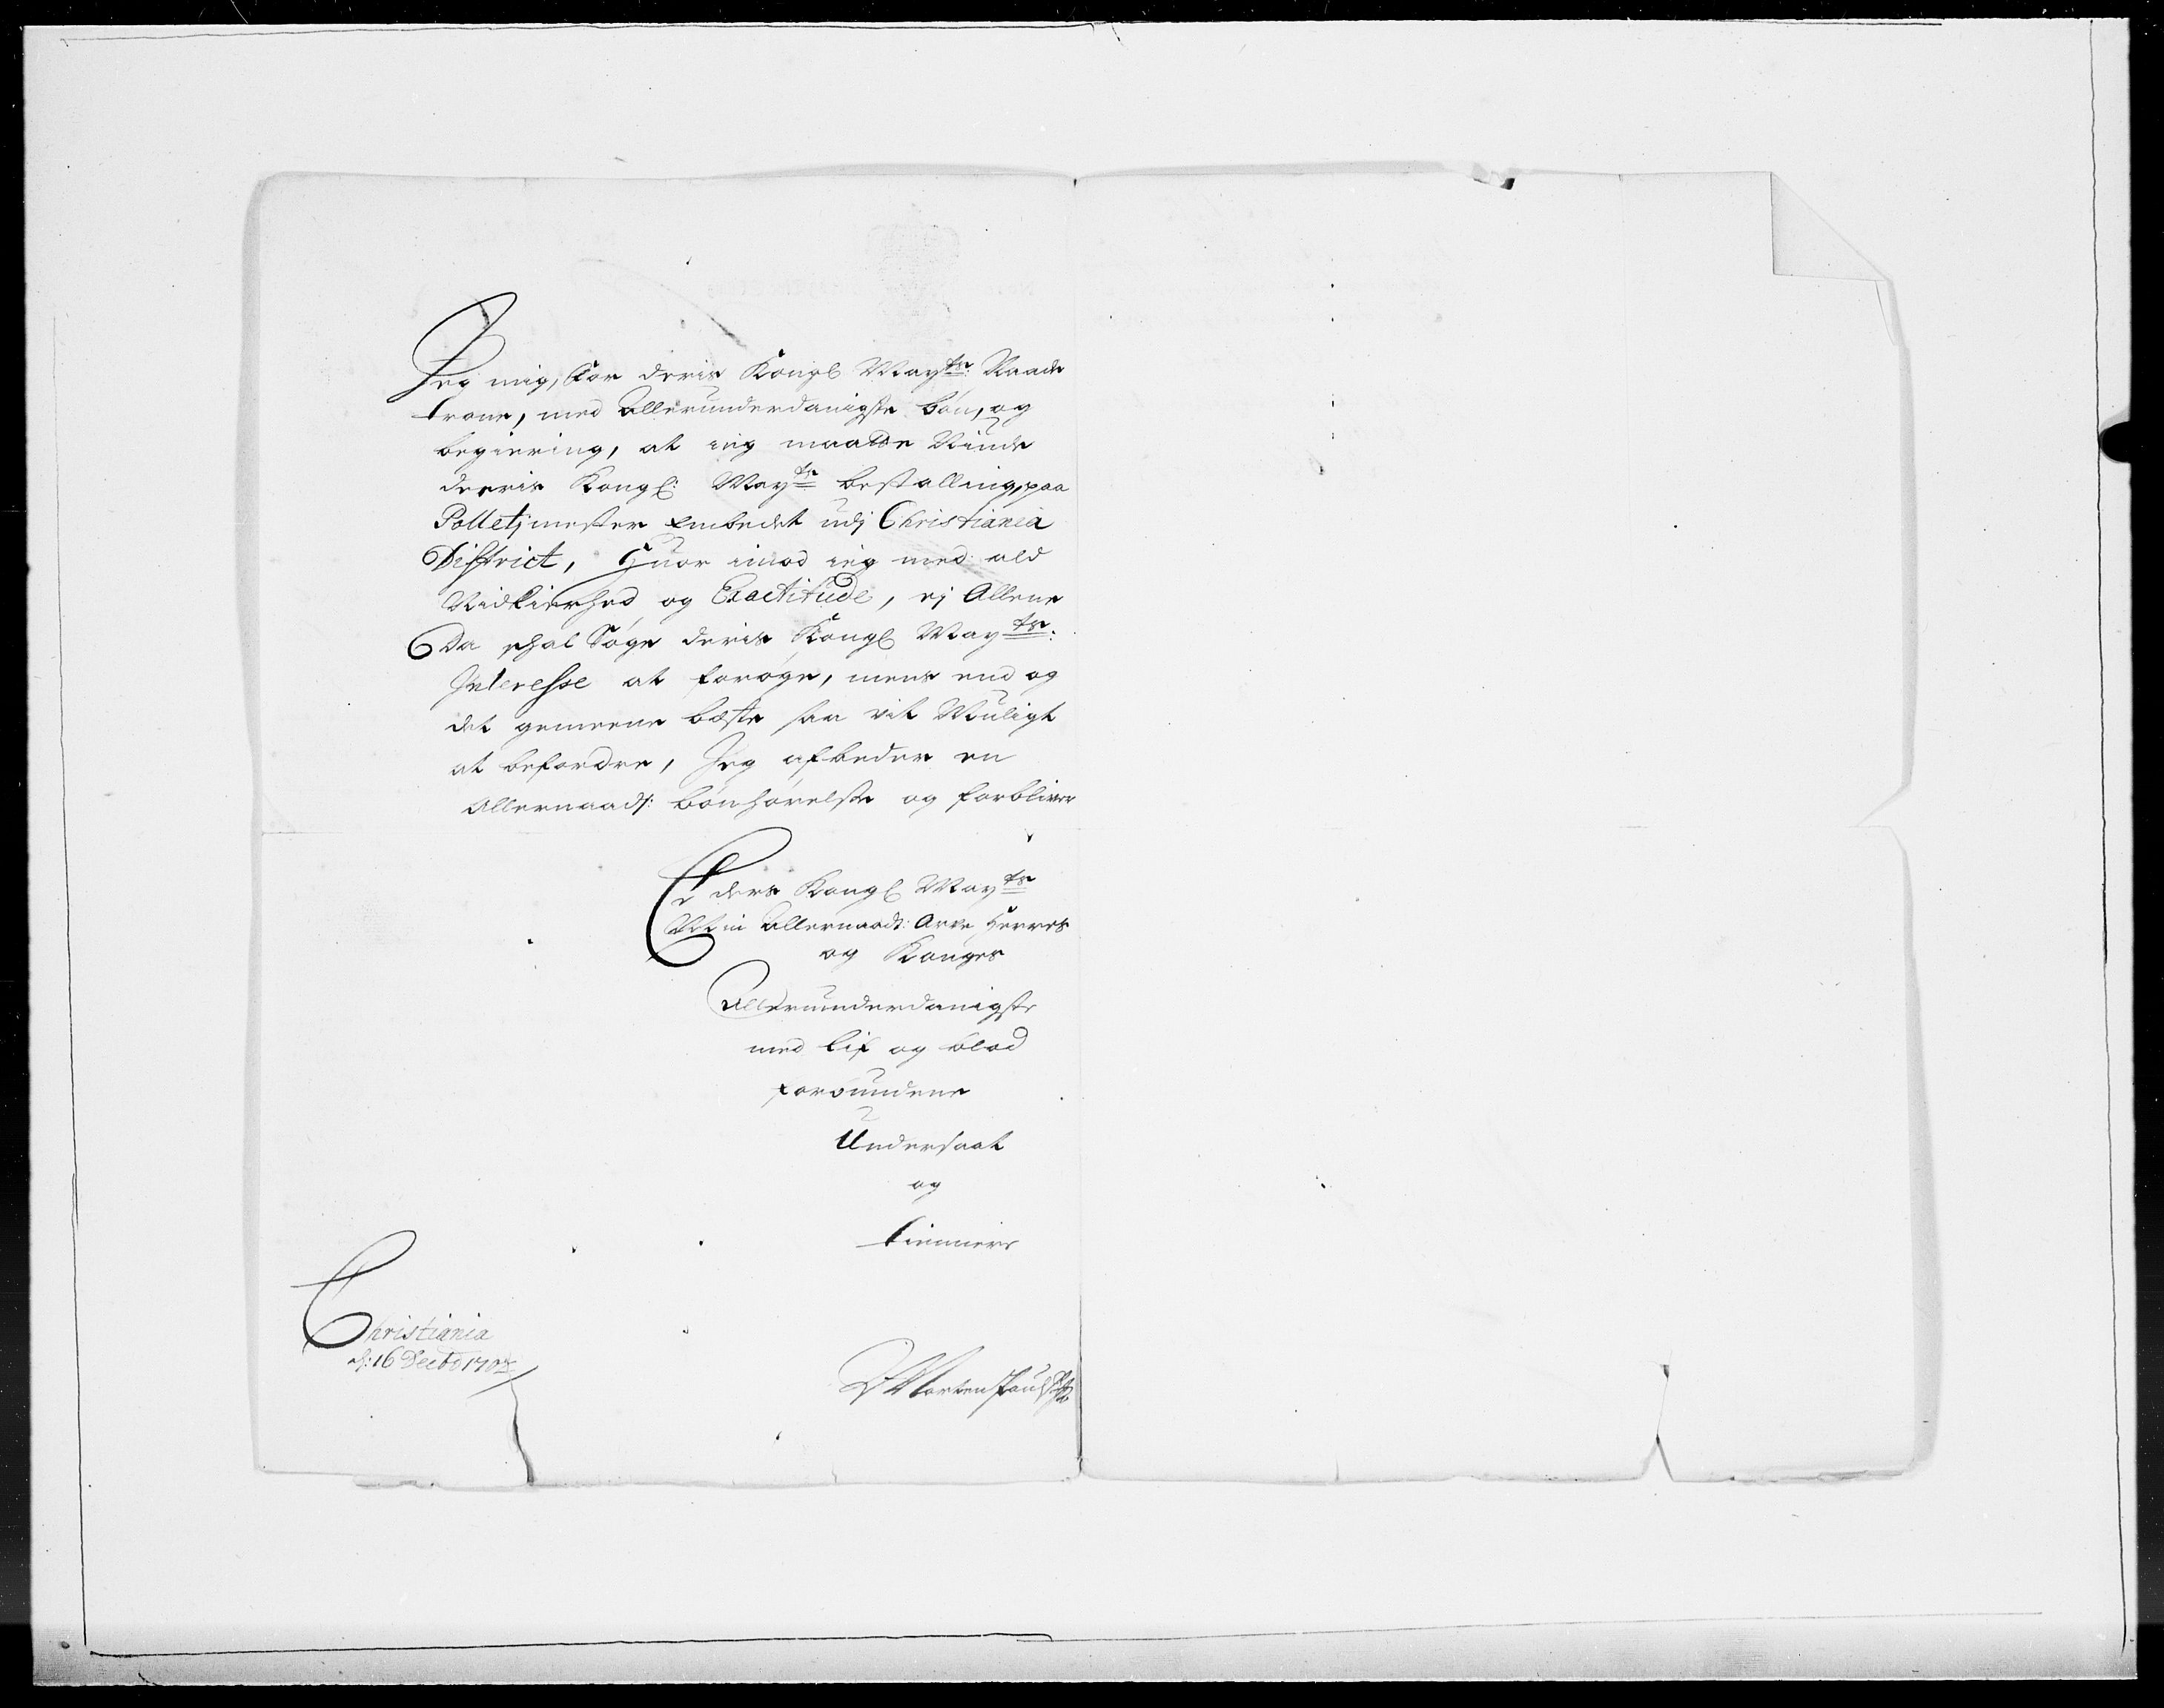 Jeg mig, for deris Kongl May:ts Naade
trone, med allerunderdanigste bön, og
begiering, at ieg maatte Niude
deeris Kongl: May:ts bestalling, paa
Polletj mester Embedet udj Christiania
District, Huor imod ieg med ald
Nidkierhed og Exactitude, ej Allene
Da schal Söge deris Kongl May:ts:
Interesse at foröge, mens end og
det gemeene beste saa vit Muligt
at befordre, Jeg afbeder en
Allernaads: bönhörelse og forbliver
Eders Kongl May:ts
Min allernaads: Arve Herres
og Konges
Allerunderdanigste
med lif og blod
forbundene
Undersaat
og
tienner
Christiania
d: 16 Decbr
Morten